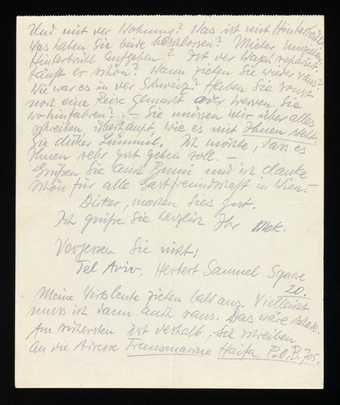 Und mit der Wohnung? Was ist mit Hinterbrühl
was haben Sie beide beschlossen? Wieder
Hinterbrühl aufgeben? Ist der Wagen repariert,
läuft er schön? Wann ziehen Sie wieder raus?
Wie war es in der Schweiz? Haben Sie sonst
noch eine Reise gemacht oder werden Sie
wohin fahren? – Sie müssen mir über alles
schreiben überhaupt, wie es mit Ihnen steht
Sie dicker Lümmel. Ich möchte, dass es
Ihnen sehr gut gehen soll. –
Grüßen Sie auch und ich danke
schön für alle Gastfreundschaft in Wien.–
Dicker, machen Sies gut.
Ich grüße Sie herzlich Ihr
Vergessen Sie nicht,
Tel Aviv. Herbert Samuel Square
20.
Meine Wirtsleute ziehen bald aus. Vielleicht
muss ich dann auch raus. Das wäre schade.
Am sichersten ist deshalb, Sie schreiben
An die Adresse Transmarine Haifa P.o.B. 705.